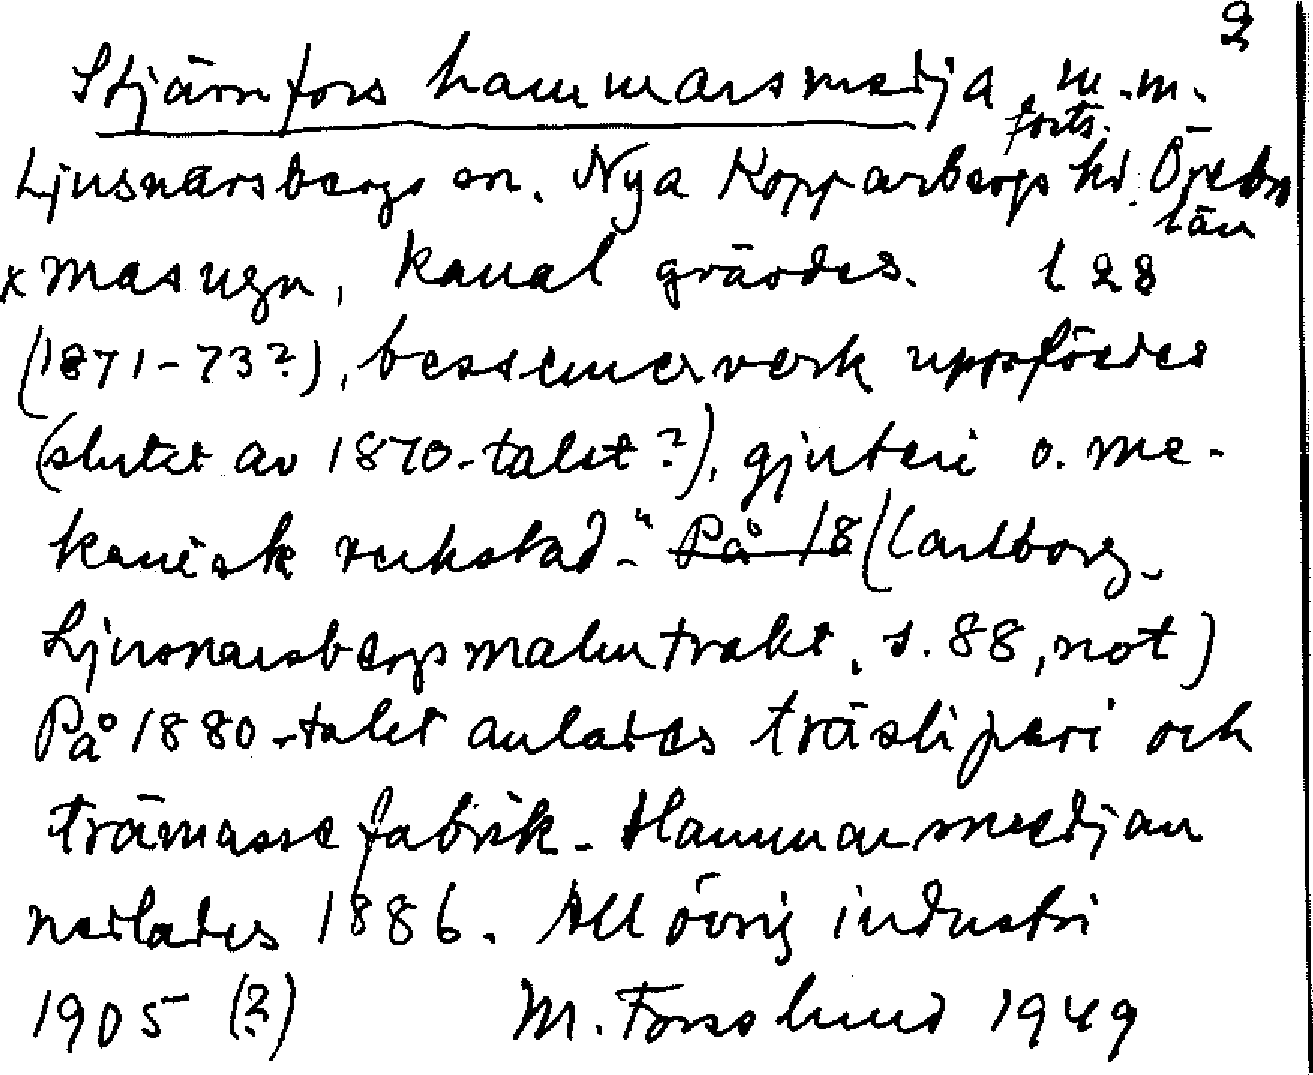 2
Stjärnfors hammarsmedja m.m.
forts.
Ljusnarsbergs sn. Nya Kopparbergs hd. Örebro
län
x masugn, kanal grävdes. l 28
(1871-73?), bessemerverk uppfördes
(slutet av 1870-talet?), gjuteri o. me-
kanisk verkstad." På 18 (Carlborg,
Ljusnarsbergs malmtrakt, s. 88, not)
På 1880-talet anlades träsliperi och
trämassefabrik. Hammarsmedjan
nedlades 1886. All övrig industri
1905 (?) M. Forslund 1949